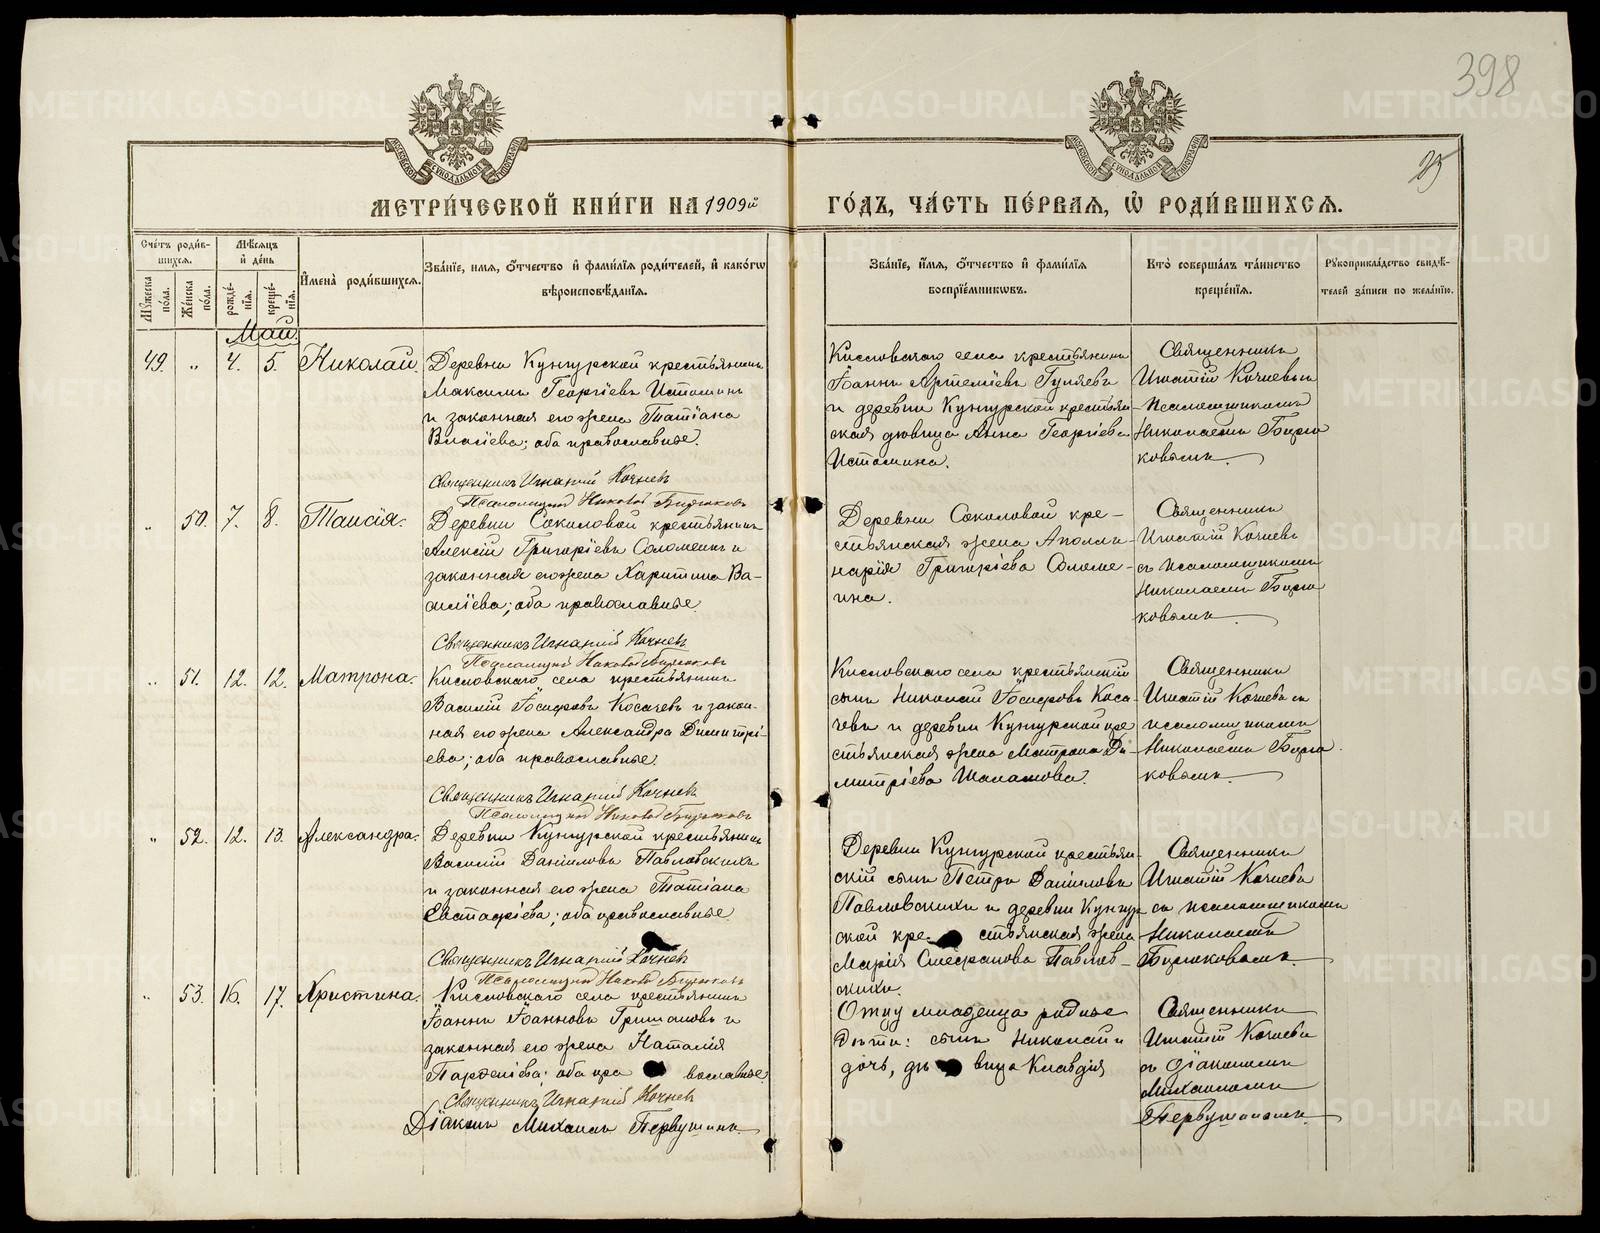 398
25
МЕТРИ́ЧЕСКОЙ КНИ́ГИ НА 1909й ГО́ДЪ, ЧА́СТЬ ПЕ́РВАЯ, Ѡ҆ РОДИ́ВШИХСѦ.
Сче́тъ роди́вшихсѧ.
Мѣ́сяцъ и҆ де́нь
И҆мена̀ роди́вшихсѧ.
Зва́нїе, имѧ, ѻ҆́тчество и҆ фами́лїѧ роди́телей, и҆ како́гѡ вѣроисповѣ́данїѧ.
Зва́нїе, и҆́мѧ, ѻ҆́тчество и҆ фами́лїѧ воспрїе́мникѡвъ.
Кто̀ соверша́лъ та́инство креще́нїѧ.
Рꙋкоприкла́дство свидѣ́телей за́писи по жела́нїю.
Мꙋ́жеска по́ла.
Же́нска по́ла.
рожде́нїѧ.
креще́нїѧ.
Май.
49. „ 4. 5. Николай.
Деревни Кунгурской крестьянинъ
Максимъ Георгіевъ Истоминъ
и законная его жена Татіана
Власіева; оба православные.
Священникъ Игнатій Кочневъ
Псаломщикъ Никол. Бирюковъ
Кисловскаго села крестьянинъ
Іоаннъ Артеміевъ Гуляевъ
и деревни Кунгурской крестьян-
ская дѣвица Анна Георгіева
Истомина.
Священникъ
Игнатій Кочневъ съ
псаломщикомъ
Николаемъ Бирю
ковымъ.
„ 50. 7. 8. Таисія.
Деревни Соколовой крестьянинъ
Алексій Григоріевъ Соломеинъ и
законная его жена Харитина Ва-
силіева; оба православные.
Священникъ Игнатій Кочневъ
Псаломщикъ Никол. Бирюковъ
Деревни Соколовой кре-
стьянская жена Аполли-
нарія Григоріева Соломе-
ина.
Священникъ
Игнатій Кочневъ
съ псаломщикомъ
Николаемъ Бирю
ковымъ.
„ 51. 12. 12. Матрона.
Кисловскаго села крестьянинъ
Василій Іосифовъ Косачевъ и закон-
ная его жена Александра Димитрі-
ева; оба православные.
Священникъ Игнатій Кочневъ
Псаломщикъ Никол. Бирюковъ
Кисловскаго села крестьянскій
сынъ Николай Іосифовъ Коса-
чевъ и деревни Кунгурской кре
стьянская жена Матрона Ди-
митріева Шаламова.
Священникъ
Игнатій Кочневъ съ
псаломщикомъ
Николаемъ Бирю
ковымъ.
„ 52. 12. 13. Александра.
Деревни Кунгурской крестьянинъ
Василій Даніиловъ Павловскихъ
и законная его жена Татіана
Евстафіева; оба православные.
Священникъ Игнатій Кочневъ
Псаломщикъ Никол. Бирюковъ
Деревни Кунгурской крестьян-
скій сынъ Петръ Даніиловъ
Павловскихъ и деревни Кунгур
ской кре- стьянская жена
Марія Стефанова Павлов-
скихъ.
Священникъ
Игнатій Кочневъ
съ псаломщикомъ
Николаемъ
Бирюковымъ.
„ 53. 16. 17. Христина.
Кисловскаго села крестьянинъ
Іоаннъ Іоанновъ
законная его жена Наталія
оба пра вославные.
Священникъ Игнатій Кочневъ
Діаконъ Михаилъ Первушинъ
Отцу младенца родные
дѣти: сынъ Николай и
дочь, дѣ вица Клавдія
Священникъ
Игнатій Кочневъ
съ діакономъ
Михаиломъ
Первушинымъ.
METRIKI.GASO-URAL.RU